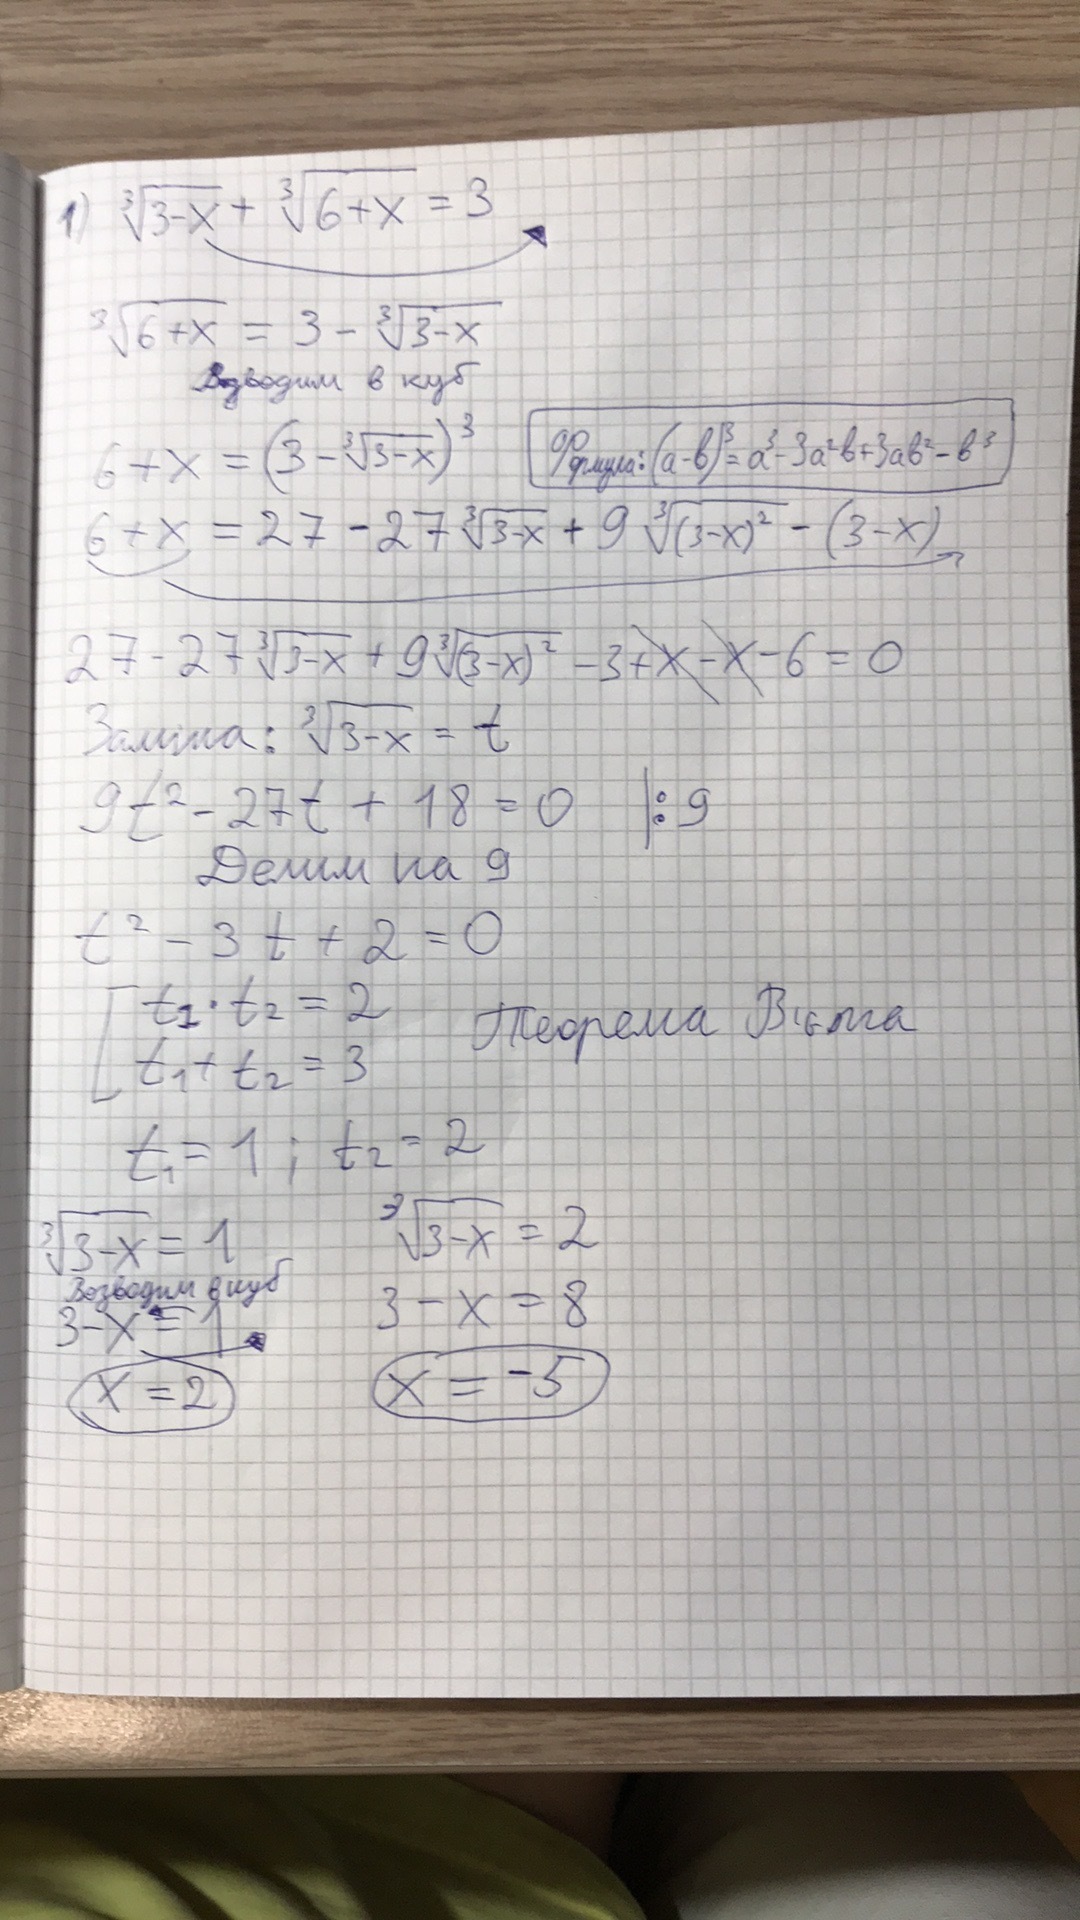 1) ∛(3-x) + ∛(6+x) = 3
∛(6+x) = 3 - ∛(3-x)
Возводим в куб
6+x = (3-∛(3-x))³
Формула: (a-b)³ = a³-3a²b+3ab²-b³
6+x = 27 - 27∛(3-x) + 9∛((3-x)²) - (3-x)
27 - 27∛(3-x) + 9∛((3-x)²) - 3+x-x-6 = 0
Заміна: ∛(3-x) = t
9t² - 27t + 18 = 0 |:9
Делим на 9
t² - 3t + 2 = 0
t₁·t₂ = 2
t₁+t₂ = 3
Теорема Виета
t₁ = 1 ; t₂ = 2
∛(3-x) = 1
Возводим в куб
3-x = 1
x = 2
∛(3-x) = 2
3 - x = 8
x = -5